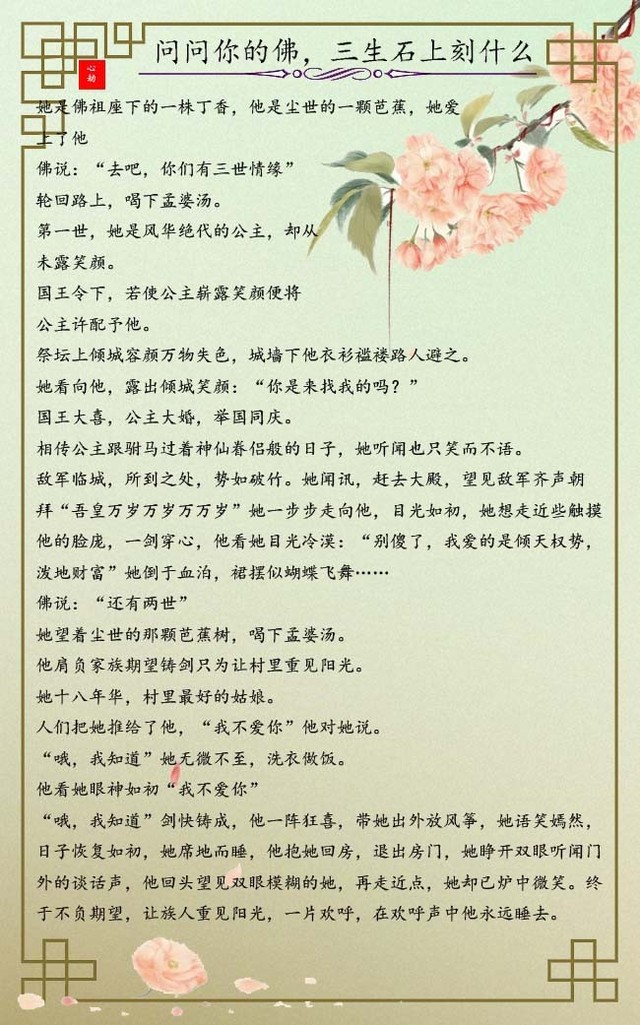 问问你的佛，三生石上刻什么
心劫
她是佛祖座下的一株丁香，他是尘世的一颗芭蕉，她爱
上了他
佛说：“去吧，你们有三世情缘”
轮回路上，喝下孟婆汤。
第一世，她是风华绝代的公主，却从
未露笑颜。
国王令下，若使公主崭露笑颜便将
公主许配予他。
祭坛上倾城容颜万物失色，城墙下他衣衫褴褛路人避之。
她看向他，露出倾城笑颜：“你是来找我的吗？”
国王大喜，公主大婚，举国同庆。
相传公主跟驸马过着神仙眷侣般的日子，她听闻也只笑而不语。
敌军临城，所到之处，势如破竹。她闻讯，赶去大殿，望见敌军齐声朝
拜“吾皇万岁万岁万万岁”她一步步走向他，目光如初，她想走近些触摸
他的脸庞，一剑穿心，他看她目光冷漠：“别傻了，我爱的是倾天权势，
泼地财富”她倒于血泊，裙摆似蝴蝶飞舞……
佛说：“还有两世”
她望着尘世的那颗芭蕉树，喝下孟婆汤。
他肩负家族期望铸剑只为让村里重见阳光。
她十八年华，村里最好的姑娘。
人们把她推给了他，“我不爱你”他对她说。
“哦，我知道”她无微不至，洗衣做饭。
他看她眼神如初“我不爱你”
“哦，我知道”剑快铸成，他一阵狂喜，带她出外放风筝，她语笑嫣然，
日子恢复如初，她席地而睡，他抱她回房，退出房门，她睁开双眼听闻门
外的谈话声，他回头望见双眼模糊的她，再走近点，她却已炉中微笑。终
于不负期望，让族人重见阳光，一片欢呼，在欢呼声中他永远睡去。